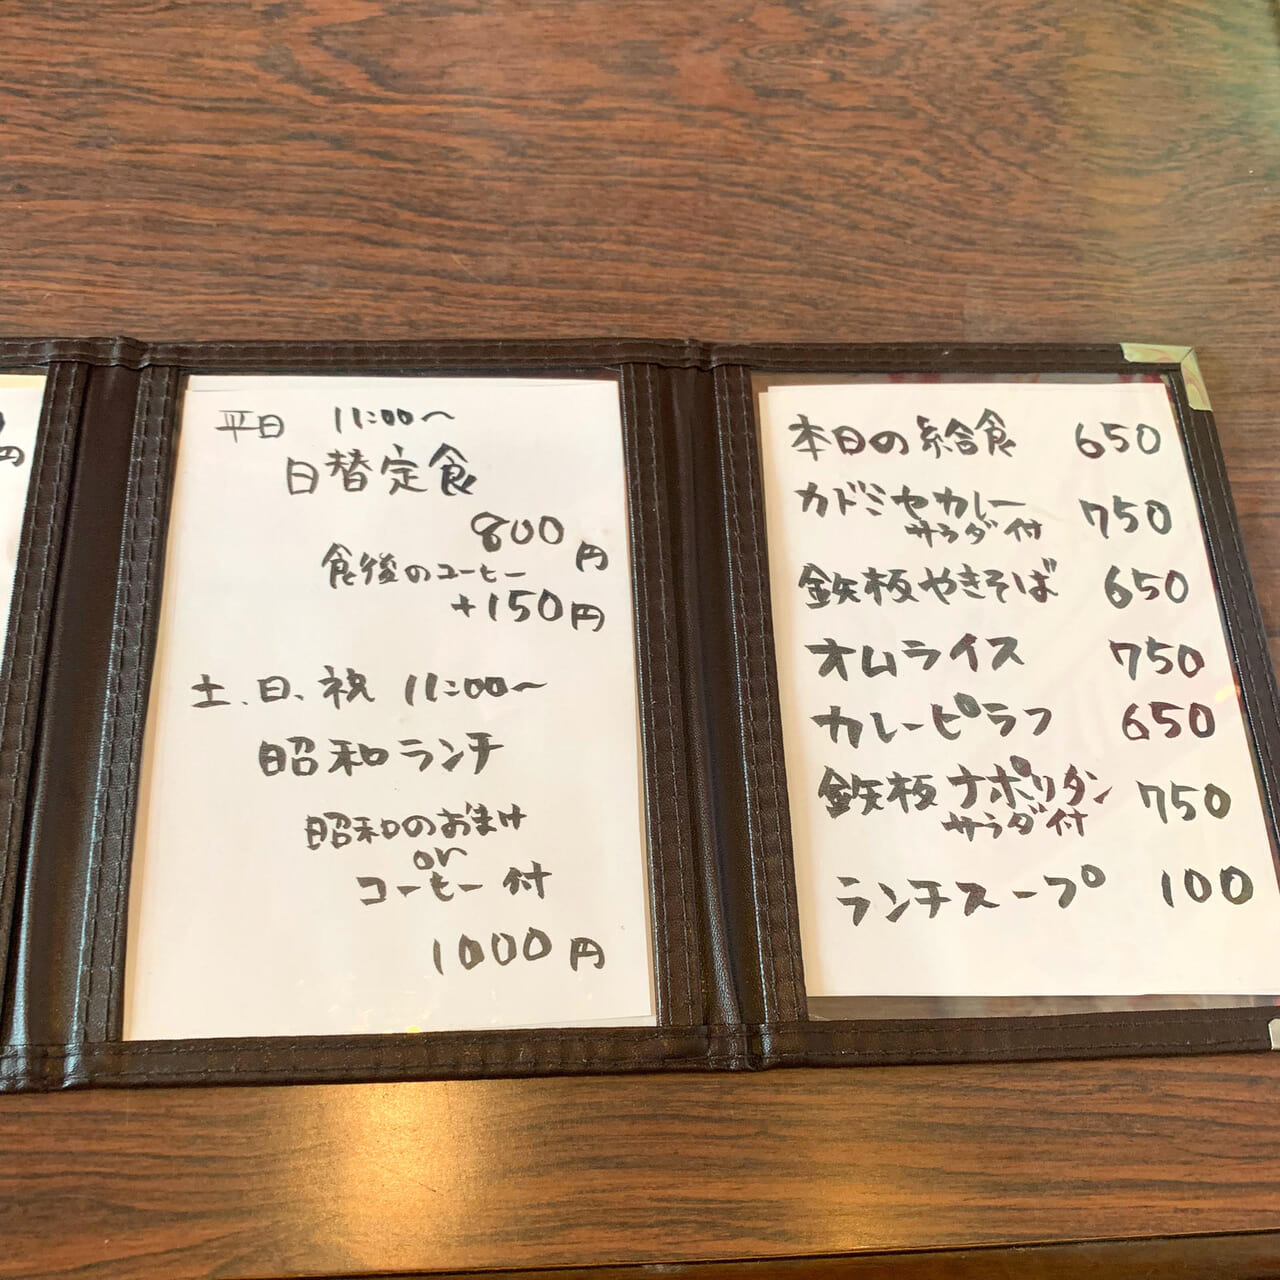 円
平日 11:00〜
日替定食
800円
食後のコーヒー
+150円
土、日、祝 11:00〜
昭和ランチ
昭和のおまけ
or
コーヒー付
1000円
本日の給食 650
カドミヤカレー 750
サラダ付
鉄板やきそば 650
オムライス 750
カレーピラフ 650
鉄板ナポリタン 750
サラダ付
ランチスープ 100